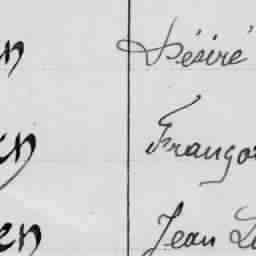 en Désiré
en Françoi
en Jean Lo